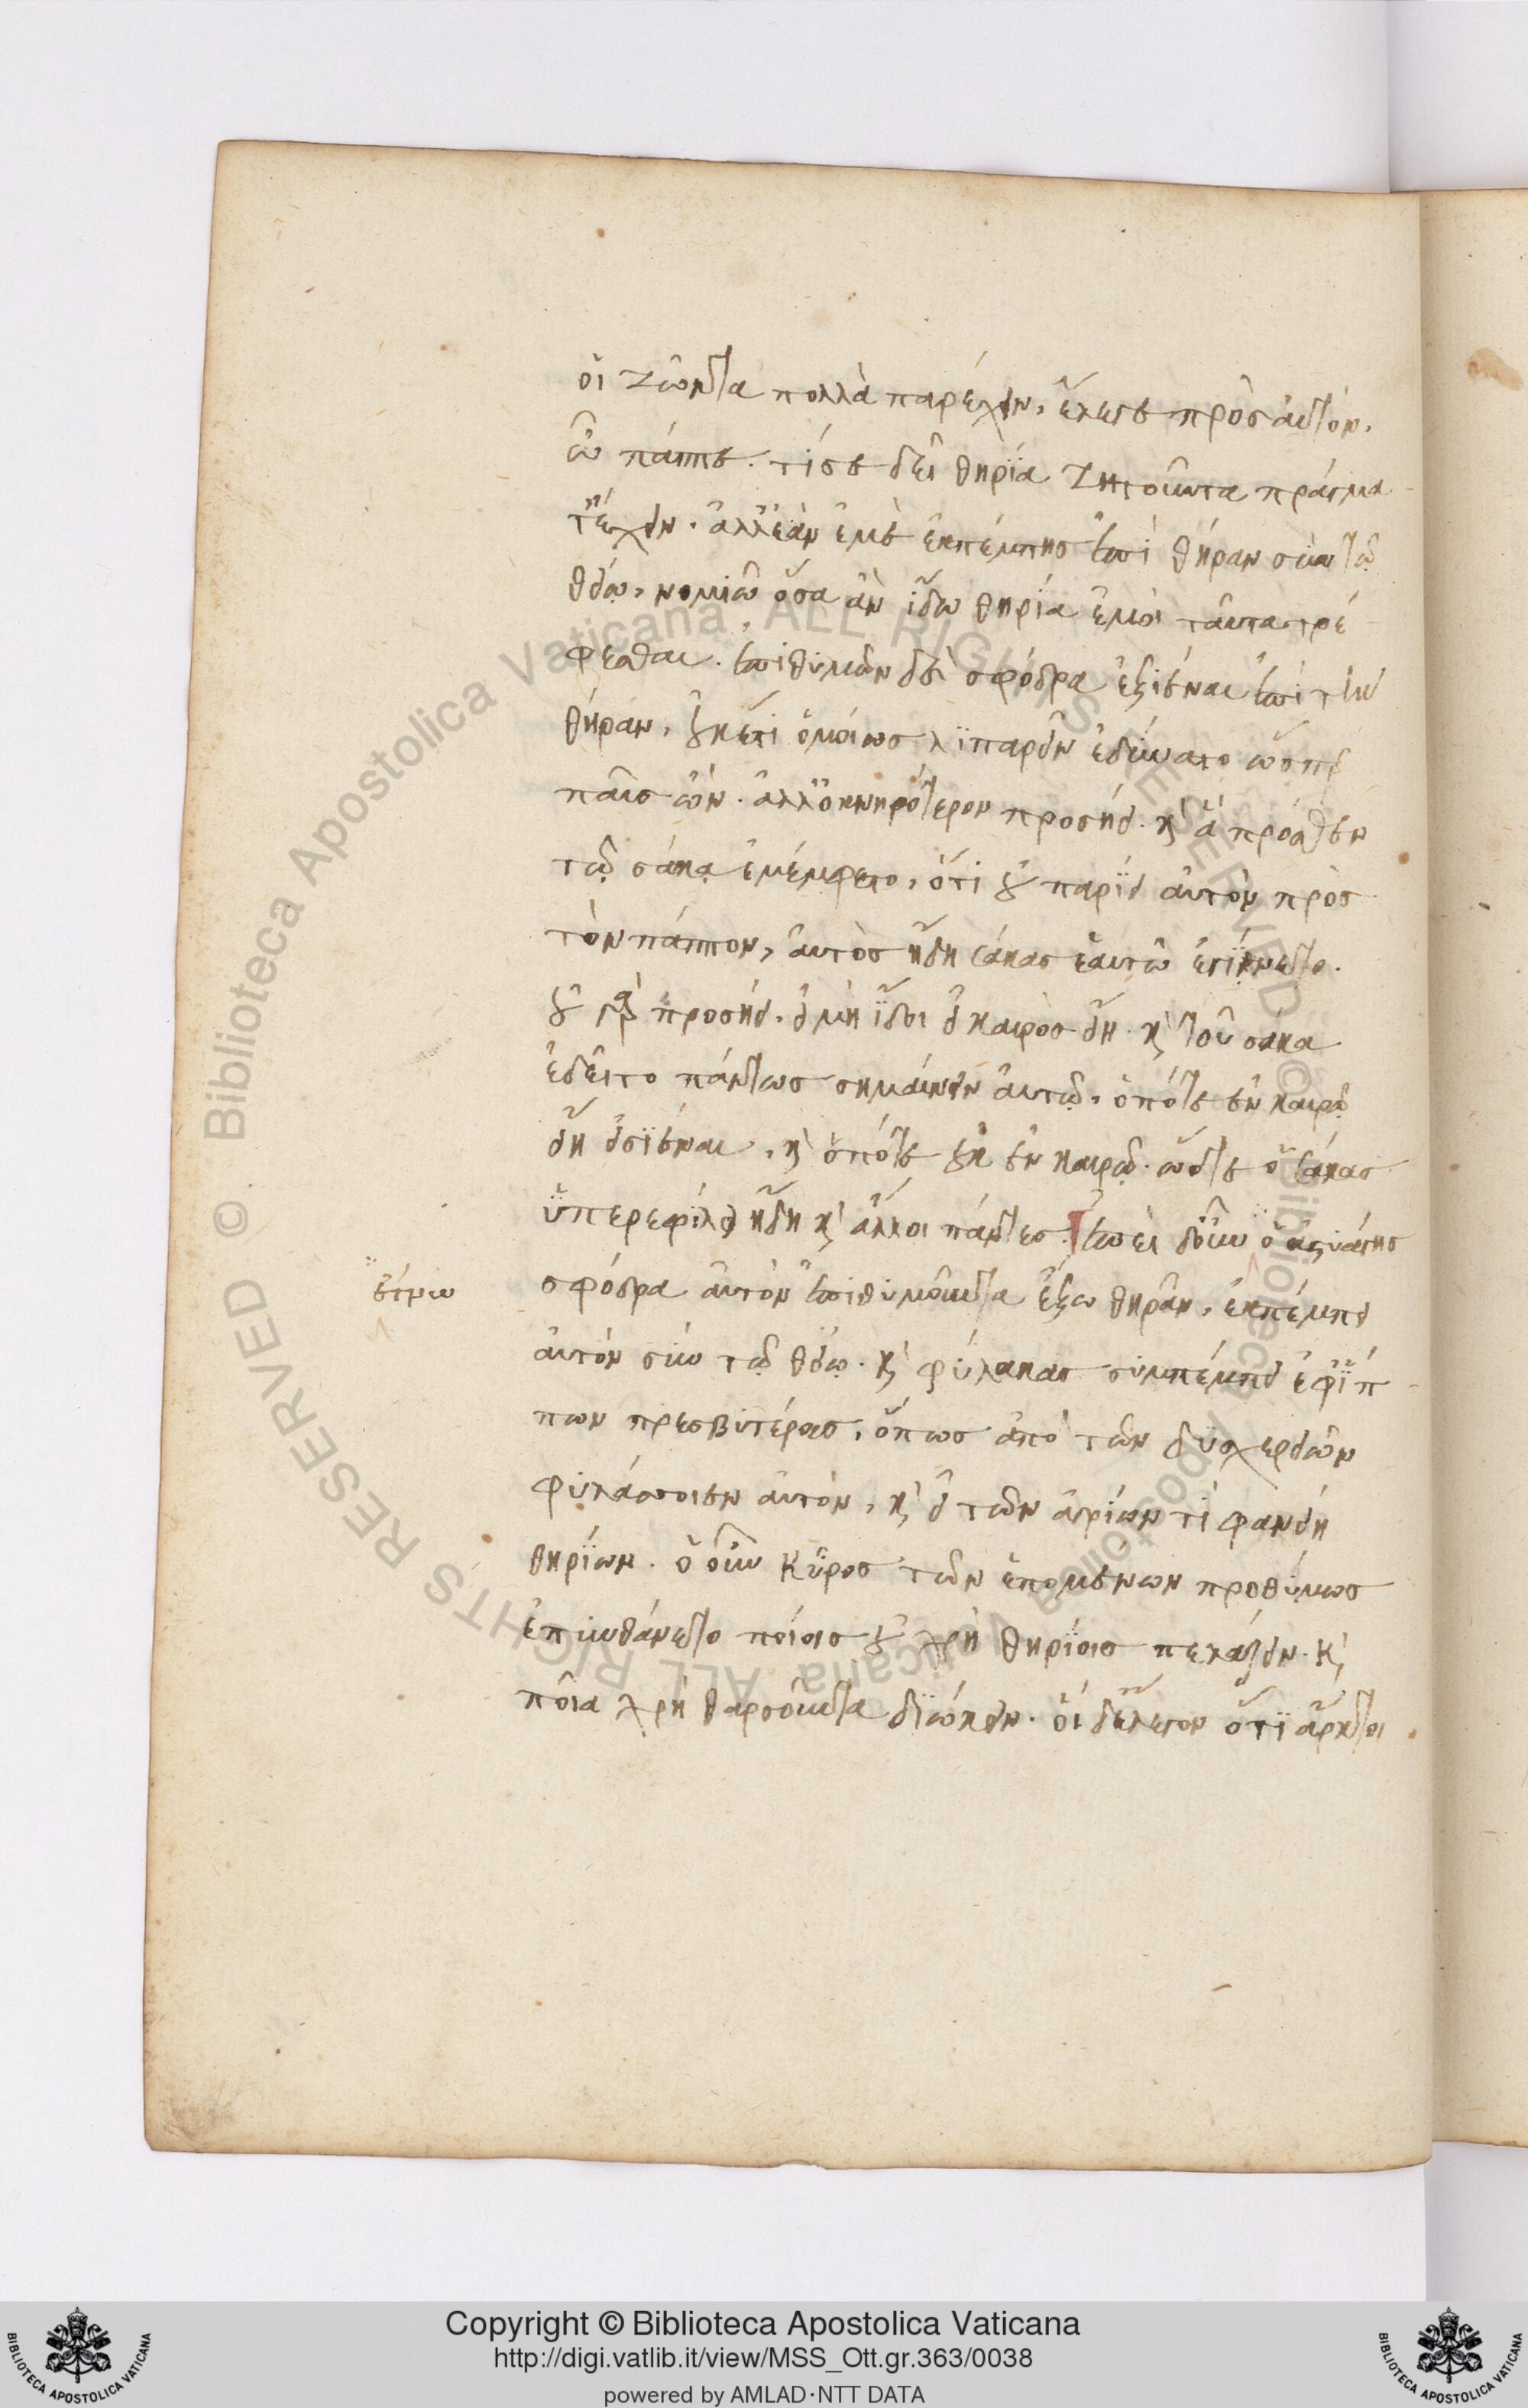 οἱ ζῶντα πολλὰ παρέχειν, ἔλεγε πρὸς αὐτὸν.
ὦ πάππε. τί σε δεῖ θηρία ζητοῦντα πράγμα-
τ᾽ ἔχειν. ἀλλ᾽ ἐὰν ἐμὲ ἐκπέμπης ἐπὶ θήραν σὺν τῶ
θείω, νομιῶ ὅσα ἂν ἴδω θηρία ἐμοὶ ταῦτα τρέ-
φεσθαι. ἐπιθυμῶν δὲ σφόδρα ἐξιέναι ἐπὶ τὴν
θήραν, οὐκέτι ὁμοίως λιπαρεῖν ἐδύνατο ὥσπερ
παῖς ὢν. ἀλλ᾽ ὀκνηρότερον προσήει. καὶ ἃ πρόσθεν
τῶ σάκα ἐμέμφετο, ὅτι οὐ παρίει αὐτὸν πρὸς
τὸν πάππον, αὐτὸς ἤδη σάκας ἑαυτῶ ἐγίγνετο.
οὐ γὰρ προσήει. εἰ μὴ ἴδοι εἰ καιρὸς εἴη. καὶ τοῦ σάκα
ἐδεῖτο πάντως σημαίνειν αὐτῶ, ὁπότε ἐν καιρῶ
εἴη εἰσϊέναι, καὶ ὁπότε οὐκ ἐν καιρῶ. ὥστε ὁ σάκας
ὑπερεφίλει ἤδη καὶ ἄλλοι πάντες. ἐπεὶ δ᾽ οὖν ὁ ἀστυάγης
σφόδρα αὐτὸν ἐπιθυμοῦντα ἔξω θηρᾶν, ἐκπέμπει
αὐτὸν σὺν τῶ θείω. καὶ φύλακας συμπέμπει ἐφ᾽ ἵπ-
πων πρεσβυτέρους, ὅπως ἀπὸ τῶν δυσχερειῶν
φυλάττοιεν αὐτὸν, καὶ εἰ τῶν ἀγρίων τὶ φανείη
θηρίων. ὁ οὖν Κῦρος τῶν ἑπομένων προθύμως
ἐπυνθάνετο ποίοις οὐ χρὴ θηρίοις πελάζειν. καὶ
ποῖα χρὴ θαρσοῦντα διώκειν. οἱ δ᾽ ἔλεγον ὅτι ἄρκτοι
Copyright © Biblioteca Apostolica Vaticana
http://digi.vatlib.it/view/MSS_Ott.gr.363/0038
powered by AMLAD·NTT DATA